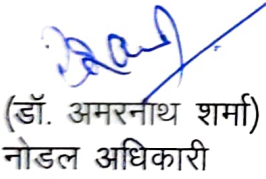 (डॉ. अमरनाथ शर्मा)
नोडल अधिकारी